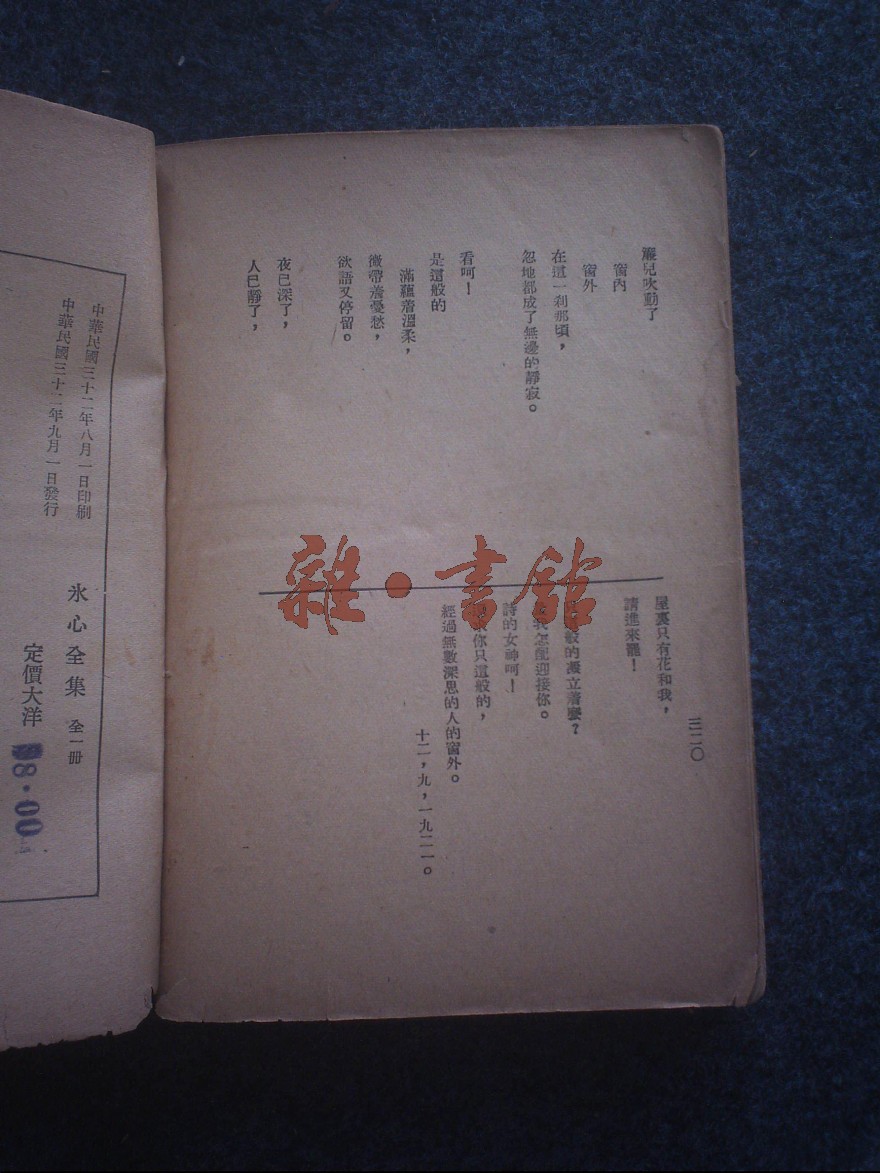 簾兒吹動了
窗內
窗外
在這一刹那頃，
忽地都成了無邊的靜寂。
看呵！
是這般的
滿蘊着溫柔，
微帶着憂愁，
欲語又停留。
夜已深了，
人已靜了，
屋裏只有花和我，
請進來罷！
般的凝立着麼？
我怎配迎接你。
詩的女神呵！
你只這般的，
經過無數深思的人的窗外。
十二，九，一九二一。
三二〇
雜·書館
中華民國三十二年八月一日印刷
中華民國三十二年九月一日發行
氷心全集 全一冊
定價大洋 98.00